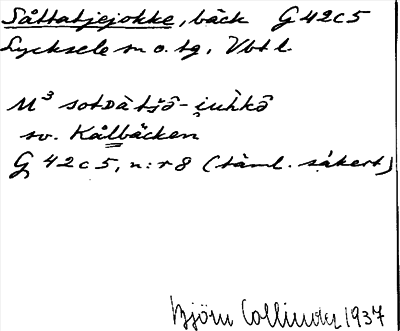 Såttatjejokke, bäck G 42 c 5
Lycksele sn o. tg, Vbt l
M³ sotDàtjə̑-i̯uh̀kə̑
sv. Kålbäcken
G 42 c 5, n:r 8 (täml. säkert)
Björn Collinder 1937